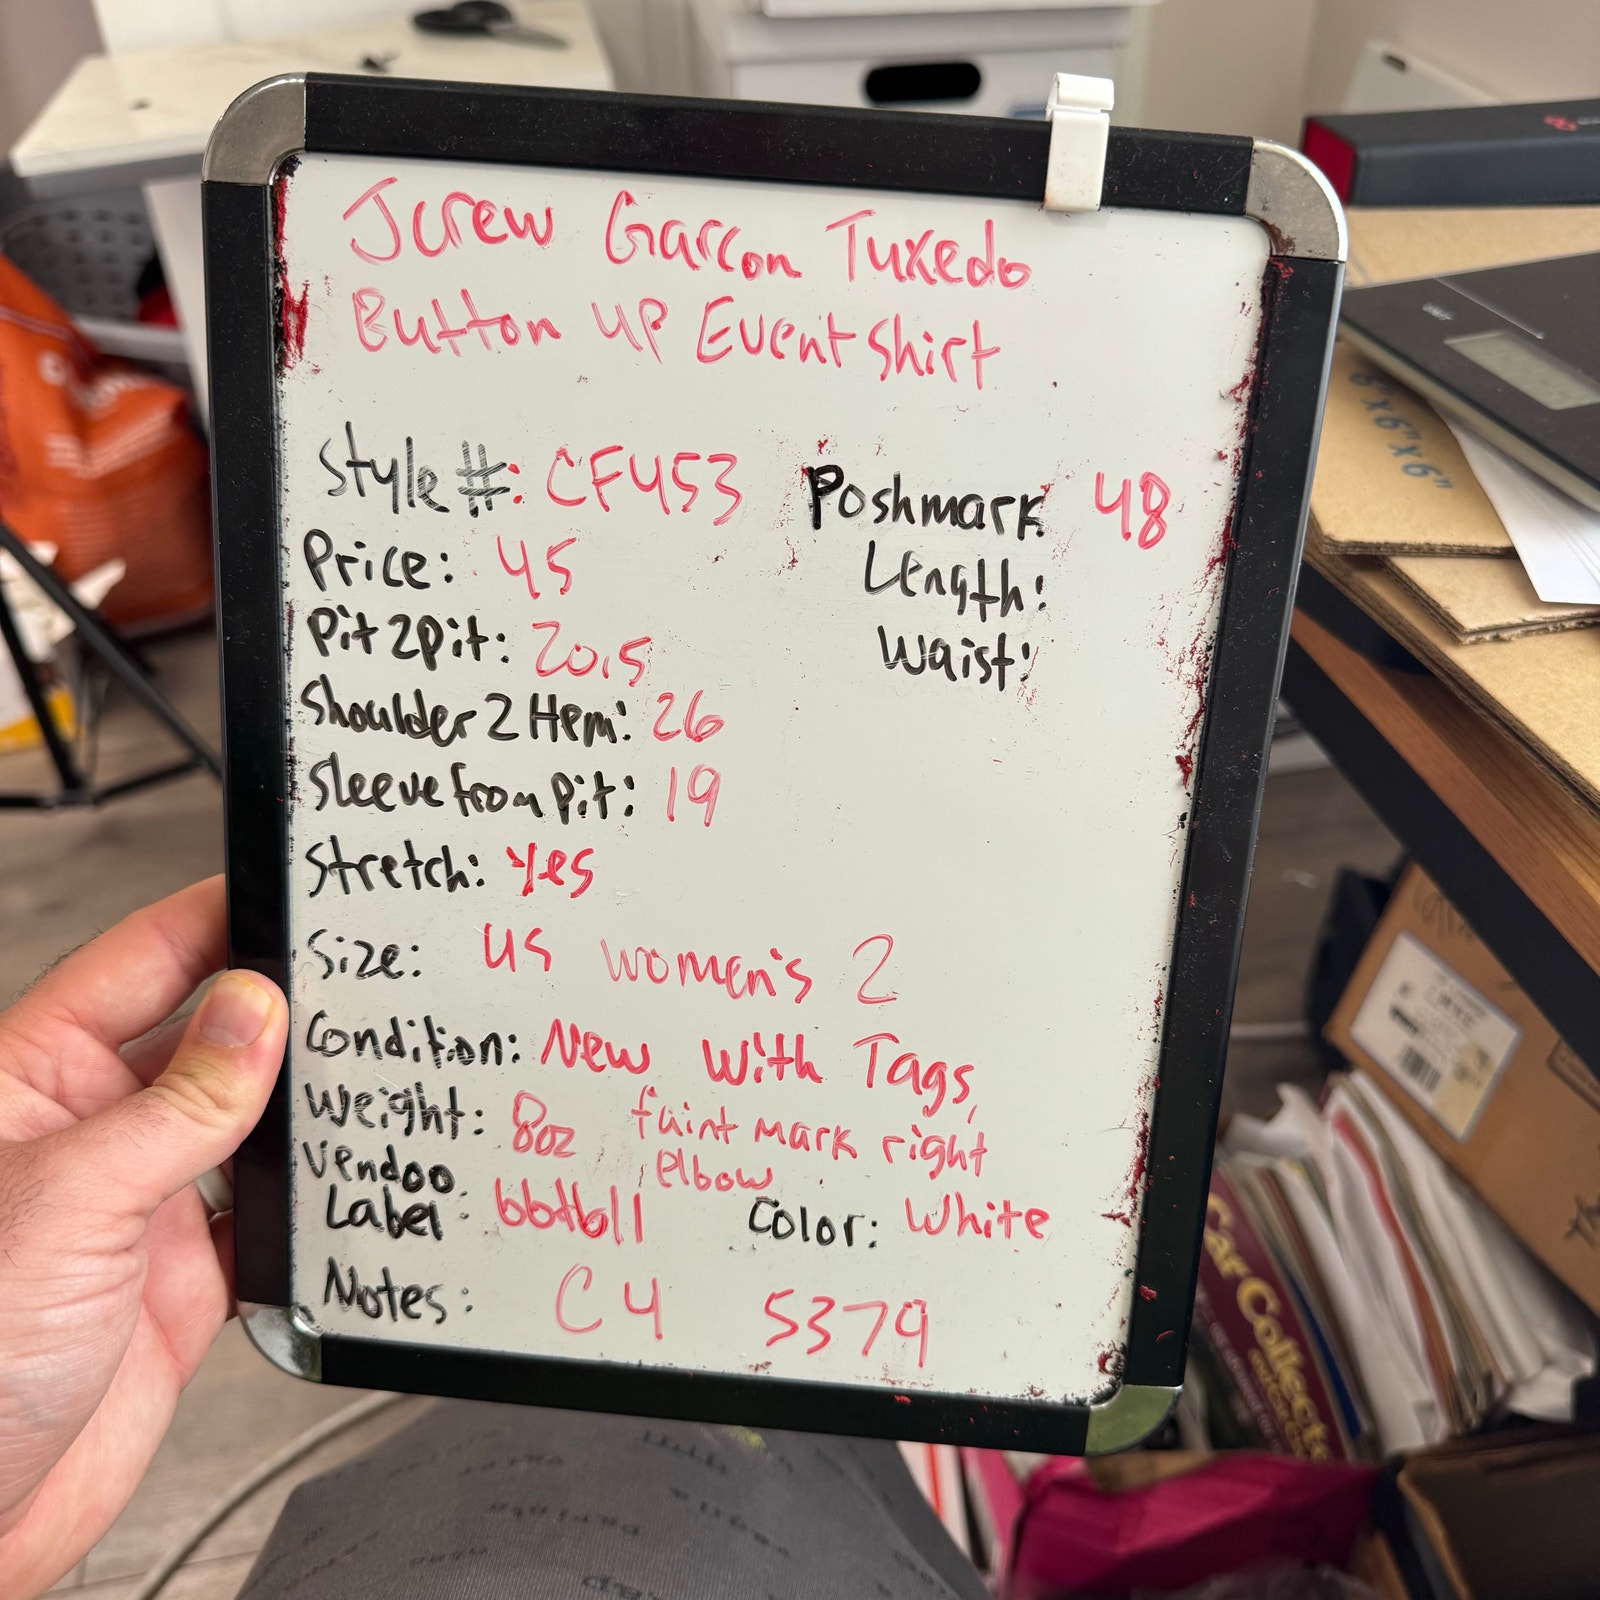 Jcrew Garcon Tuxedo
Button up Event shirt
Style #: CF453
Poshmark 48
Price: 45
Length:
Pit 2 Pit: 20.5
Waist:
Shoulder 2 Hem: 26
Sleeve from Pit: 19
Stretch: Yes
Size: US women's 2
Condition: New With Tags,
faint mark right
elbow
Weight: 8oz
Vendoo
Label: bbtb11
Color: White
Notes: C4 5379
9" x 9"
Car Collector